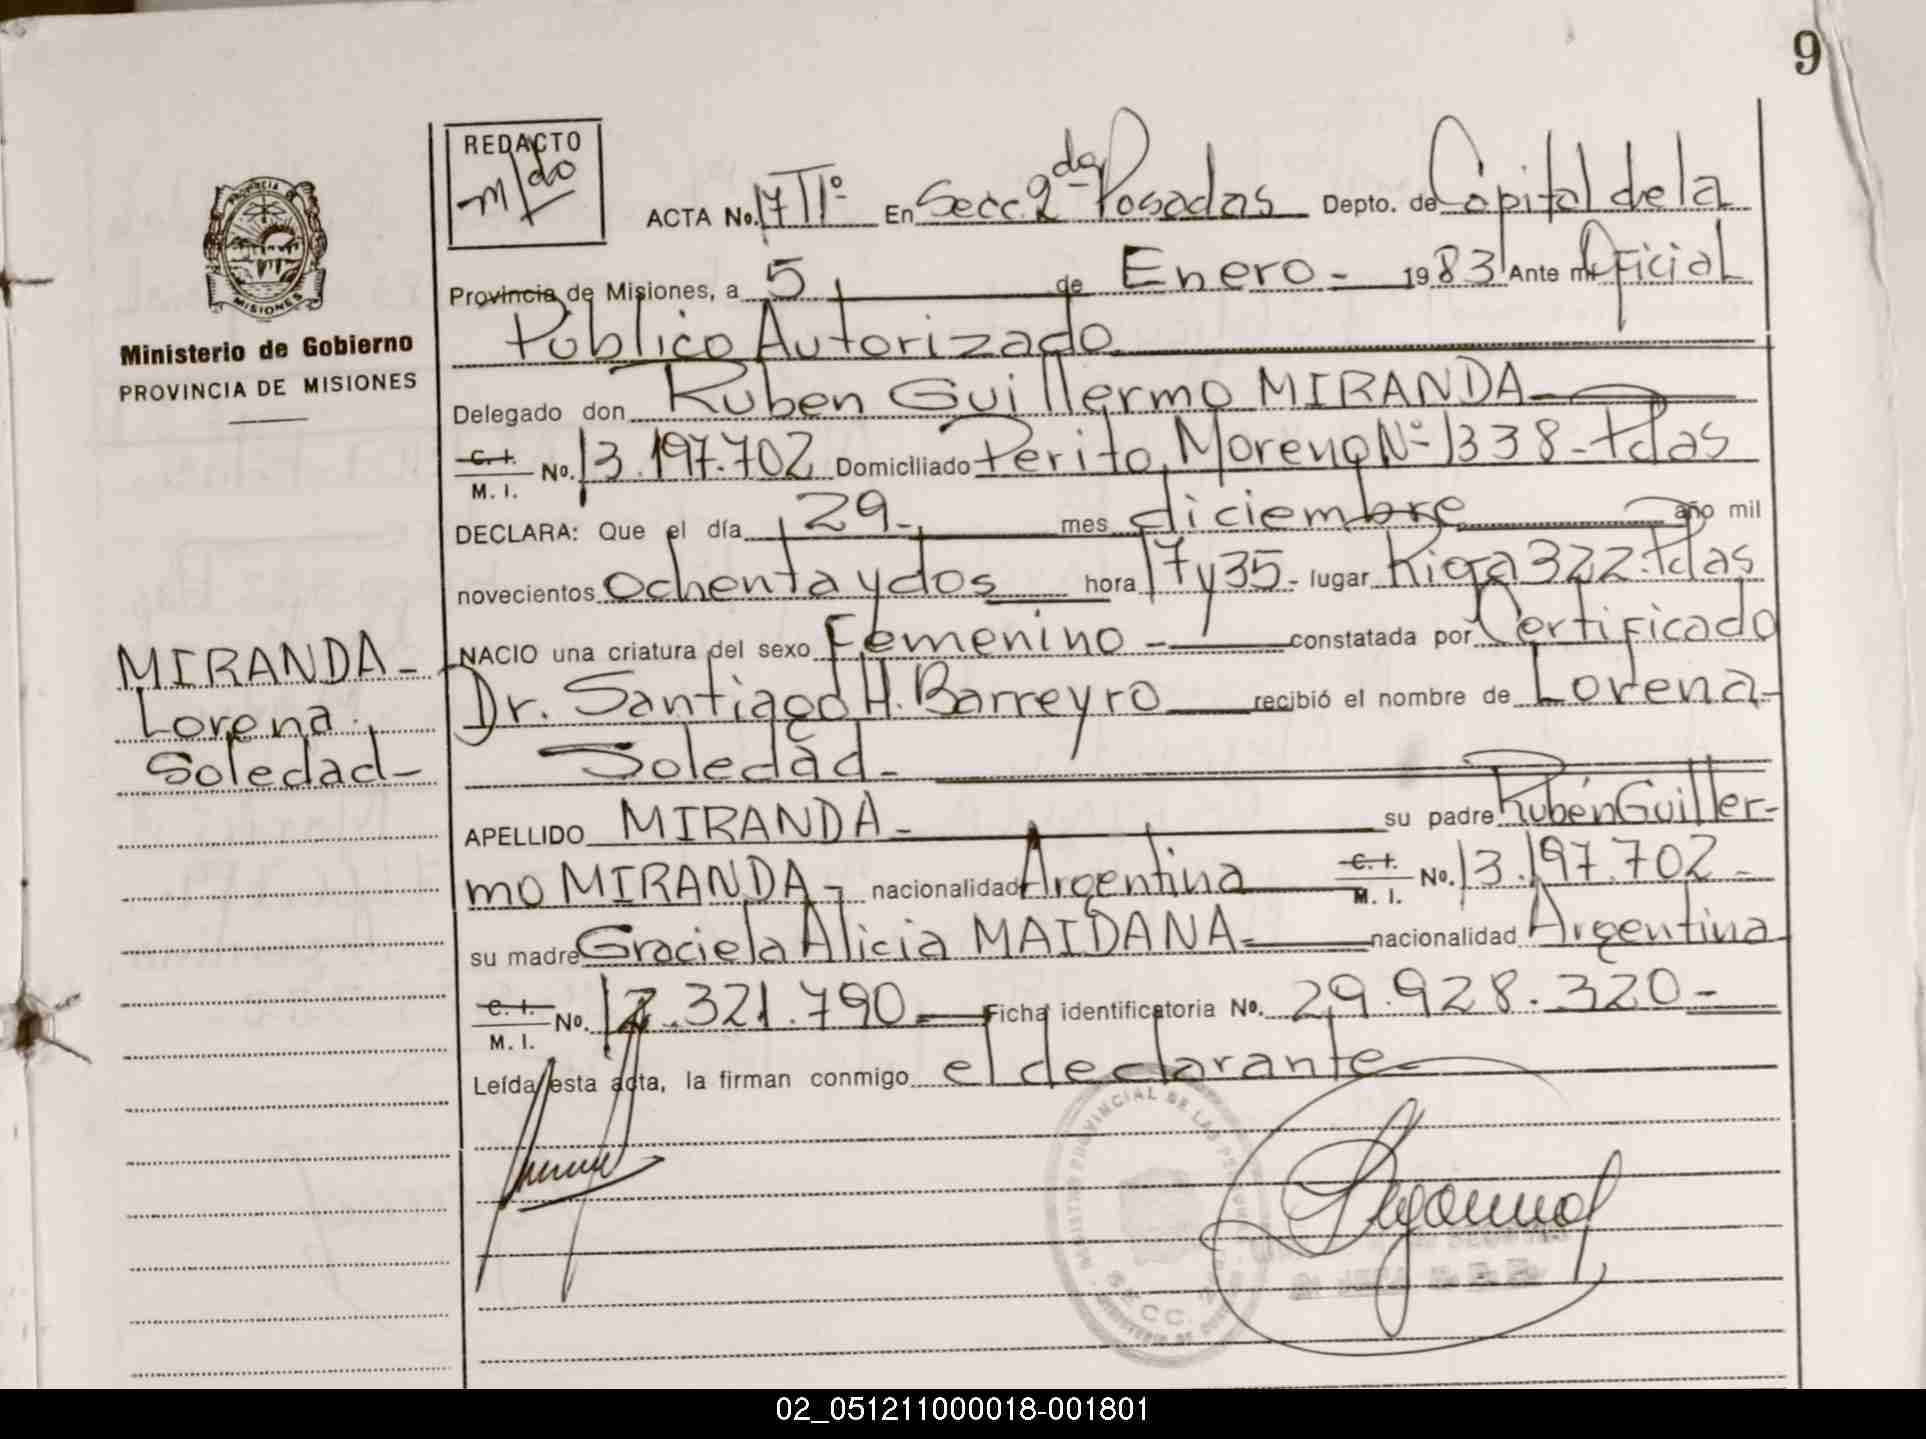 9
REDACTO
m/do
ACTA No. 17 TIº En Secc 2da Posadas Depto. de Capital de la
Provincia de Misiones, a 5 de Enero - 1983 Ante mi Oficial
Público Autorizado
Delegado don Ruben Guillermo MIRANDA
C. I. M. I. No. 13.197.702 Domiciliado Perito Moreno Nº 1338 - Pdas
DECLARA: Que el día 29 - mes diciembre año mil
novecientos ochenta y dos hora 17 y 35 - lugar Rioja 322 - Pdas
NACIO una criatura del sexo Femenino - constatada por Certificado
Dr. Santiago H. Barreyro recibió el nombre de Lorena -
Soledad -
APELLIDO MIRANDA - su padre Rubén Guiller-
mo MIRANDA - nacionalidad Argentina C. I. M. I. No. 13.197.702 -
su madre Graciela Alicia MAIDANA - nacionalidad Argentina
C. I. M. I. No. 12.321.790 - Ficha identificatoria No. 29.928.320 -
Leída esta acta, la firman conmigo el declarante
PROVINCIA DE
MISIONES
Ministerio de Gobierno
PROVINCIA DE MISIONES
MIRANDA -
Lorena
Soledad -
PROVINCIAL DE LAS PERSONAS
SECC. 2
02_051211000018-001801